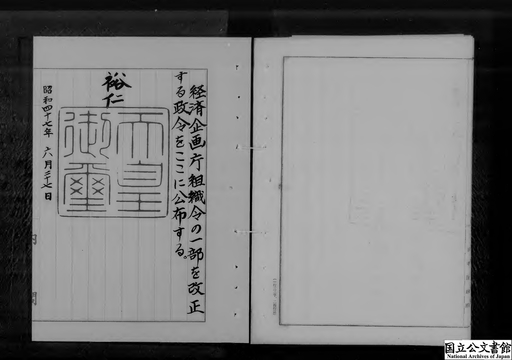 経済企画庁組織令の一部を改正
する政令をここに公布する。
裕仁
天皇
御璽
昭和四十七年 六月二十七日
内閣
国立公文書館
National Archives of Japan